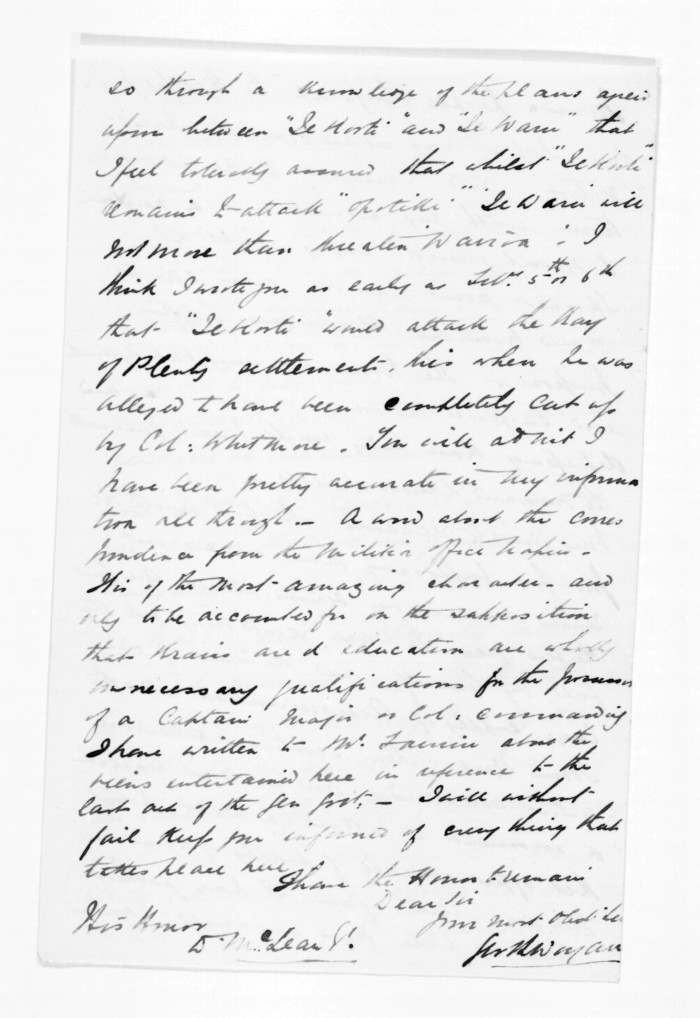 so through a knowledge of the plans agreed
upon between "Te Kooti" and "Te Waru" that
I feel tolerably assured that whilst "Te Kooti"
remains to attack "Opotiki" "Te Waru will
not more than threaten Wairoa". I
think I wrote you as early as Feby. 5th or 6th
that "Te Kooti" would attack the Bay
of Plenty settlements, this when he was
alleged to have been completely cut up
by Col: Whitmore. You will admit I
have been pretty accurate in my informa
tion all through. — A word about the corres
pondence from the Militia office Napier.
It is of the most amazing character - and
only to be accounted for on the supposition
that brains and education are wholly
unnecessary qualifications for the
of a Captain Major or Col: Commanding
I have written to Mr. about the
views entertained here in reference to the
last act of the Gen Govt: — I will without
fail keep you informed of every thing that
takes place here
I have the Honor to remain
Dear Sir
Your most Obdt
His Honor
D McLean